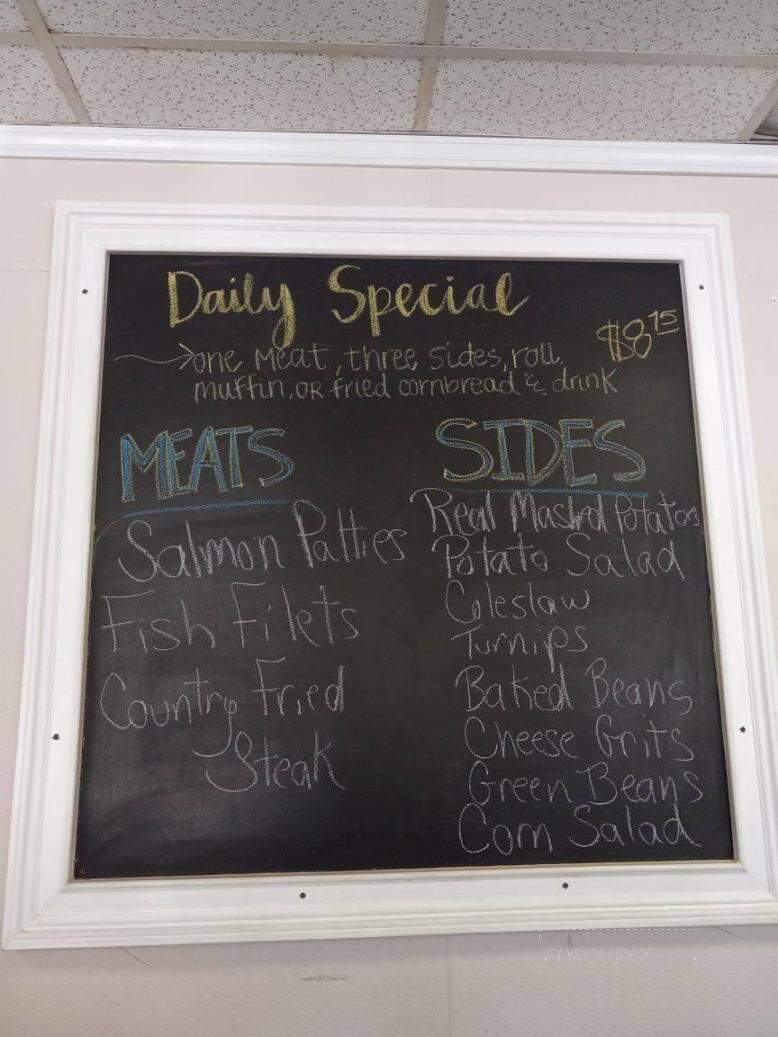 Daily Special
$8.15
one meat, three sides, roll,
muffin, or fried cornbread & drink
MEATS
Salmon Patties
Fish Filets
Country Fried
Steak
SIDES
Real Mashed Potatoes
Potato Salad
Coleslaw
Turnips
Baked Beans
Cheese Grits
Green Beans
Corn Salad